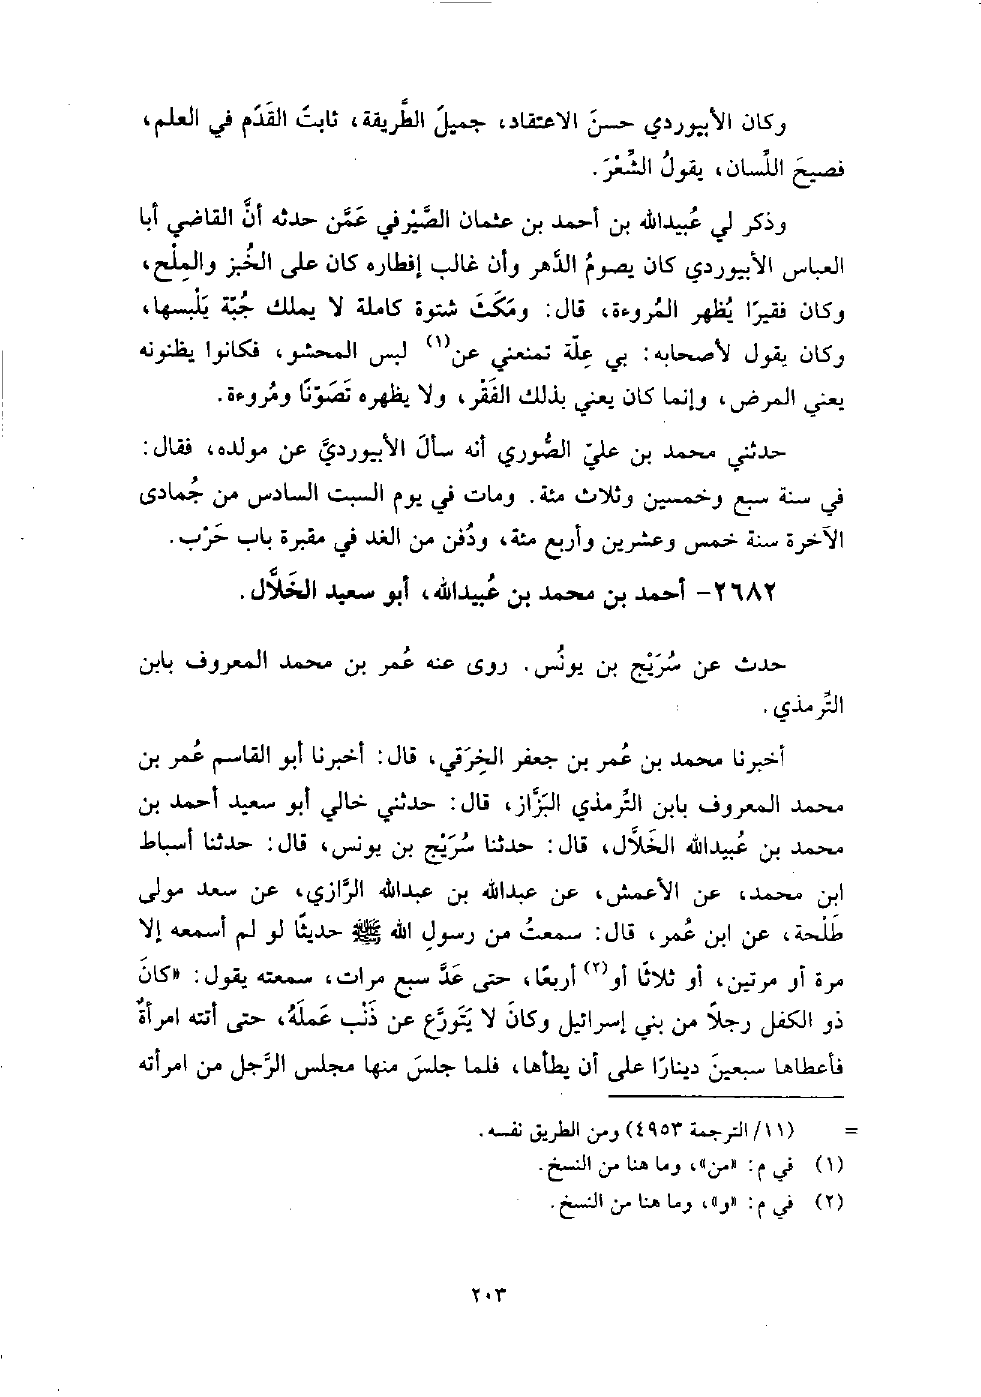 وكان الأبيوردي حسنَ الاعتقاد، جميلَ الطَّريقة، ثابتَ القَدَم في العلم،
فصيحَ اللِّسان، يقولُ الشِّعْرَ.
وذكر لي عُبيدالله بن أحمد بن عثمان الصَّيْرفي عَمَّن حدثه أنَّ القاضي أبا
العباس الأبيوردي كان يصومُ الدَّهر وأن غالب إفطاره كان على الخُبز والمِلْح،
وكان فقيرًا يُظهر المُروءة، قال: ومَكَثَ شتوة كاملة لا يملك جُبّة يَلْبسها،
وكان يقول لأصحابه: بي عِلّة تمنعني عن(١) لبس المحشو، فكانوا يظنونه
يعني المرض، وإنما كان يعني بذلك الفَقْر، ولا يظهره تَصَوّنًا ومُروءة.
حدثني محمد بن عليّ الصُّوري أنه سألَ الأبيورديَّ عن مولده، فقال:
في سنة سبع وخمسين وثلاث مئة. ومات في يوم السبت السادس من جُمادى
الآخرة سنة خمس وعشرين وأربع مئة، ودُفن من الغد في مقبرة باب حَرْب.
٢٦٨٢- أحمد بن محمد بن عُبيدالله، أبو سعيد الخَلَّال.
حدث عن سُرَيْج بن يونُس. روى عنه عُمر بن محمد المعروف بابن
التِّرمذي.
أخبرنا محمد بن عُمر بن جعفر الخِرَقي، قال: أخبرنا أبو القاسم عُمر بن
محمد المعروف بابن التِّرمذي البَزَّاز، قال: حدثني خالي أبو سعيد أحمد بن
محمد بن عُبيدالله الخَلَّال، قال: حدثنا سُرَيْج بن يونس، قال: حدثنا أسباط
ابن محمد، عن الأعمش، عن عبدالله بن عبدالله الرَّازي، عن سعد مولى
طَلْحة، عن ابن عُمر، قال: سمعتُ من رسولِ الله ﷺ حديثًا لو لم أسمعه إلا
مرة أو مرتين، أو ثلاثًا أو(٢) أربعًا، حتى عَدَّ سبع مرات، سمعته يقول: «كانَ
ذو الكفل رجلاً من بني إسرائيل وكانَ لا يَتَورَّع عن ذَنْب عَملَهُ، حتى أتته امرأةٌ
فأعطاها سبعينَ دينارًا على أن يطأها، فلما جلسَ منها مجلس الرَّجل من امرأته
= (١١/ الترجمة ٤٩٥٣) ومن الطريق نفسه.
(١) في م: «من»، وما هنا من النسخ.
(٢) في م: «و»، وما هنا من النسخ.
٢٠٣